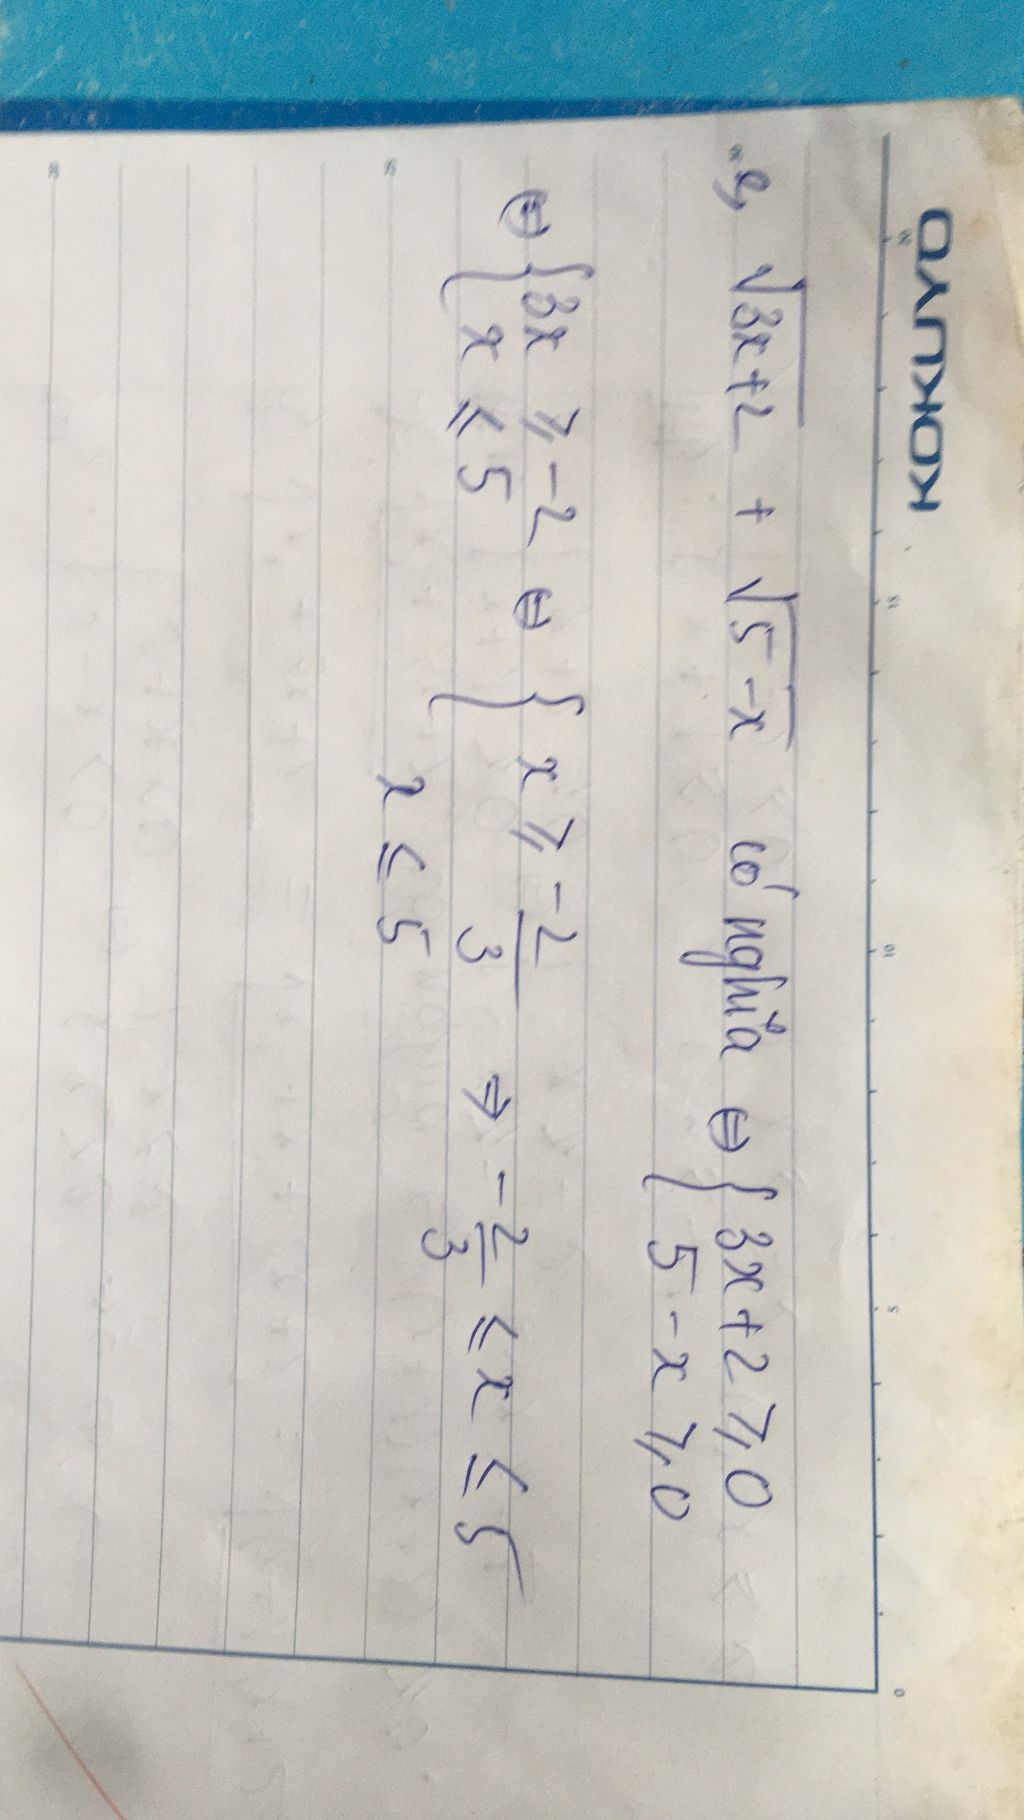 KOKUYO
e, √(3x+2) + √(5-x) có nghĩa ⇔ { 3x+2 ⩾ 0
5 - x ⩾ 0
⇔ { 3x ⩾ -2 ⇔ { x ⩾ -2/3 ⇒ -2/3 ≤ x ≤ 5
x ≤ 5 x ≤ 5